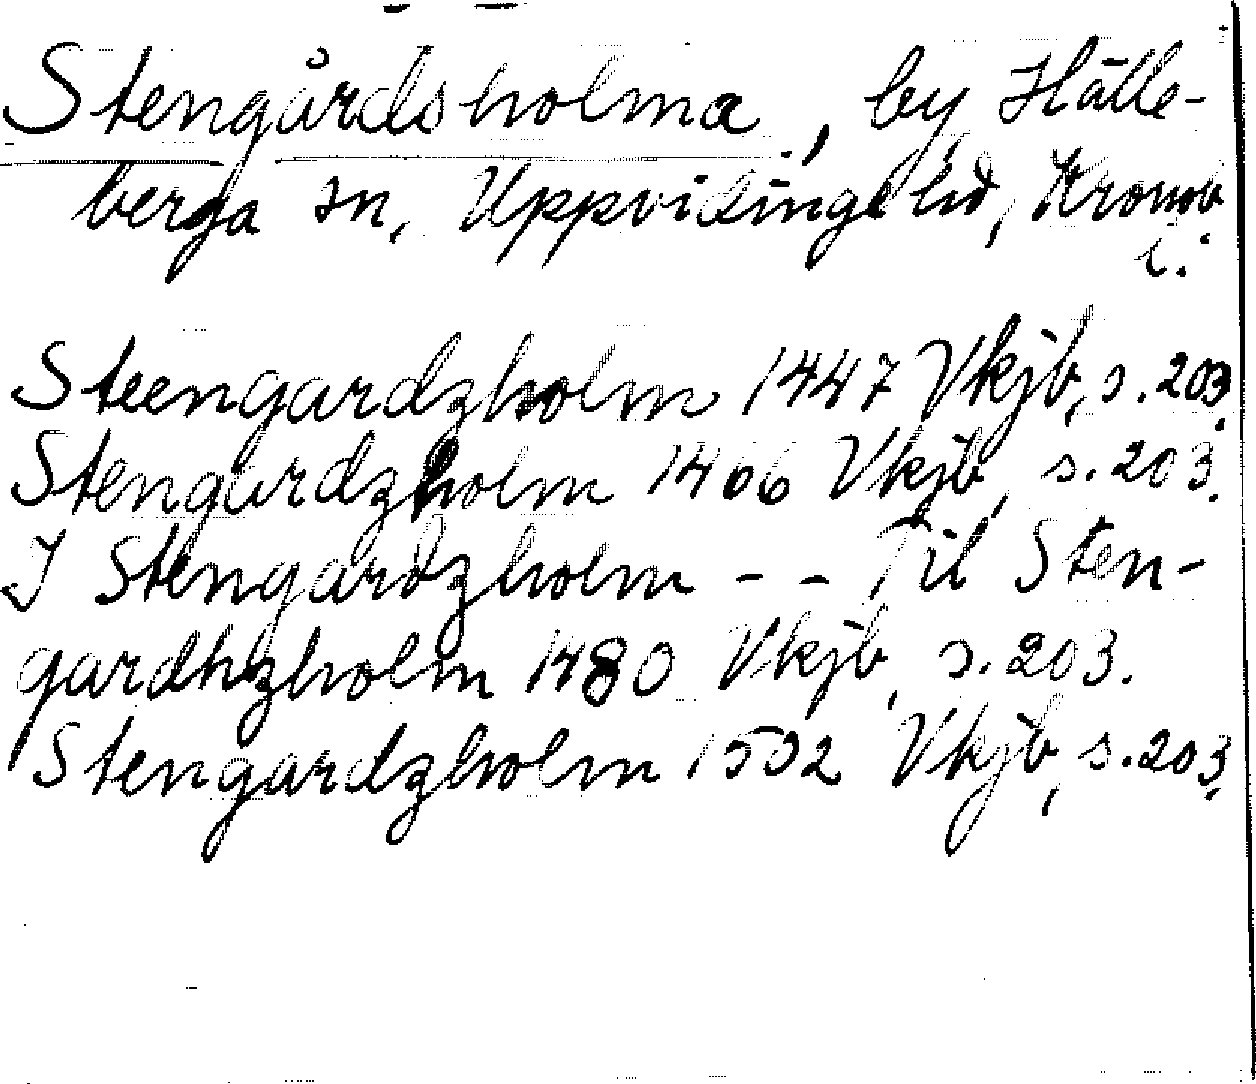 Stengårdsholma, by, Hälle-
berga sn, Uppvidinge hd, Kronob.
l.
Steengardzholm 1447 Vkjb, s. 203.
Stengardzholm 1466 Vkjb, s. 203.
I Stengardzholm - - Til Sten-
gardhzholm 1480 Vkjb, s. 203.
Stengardzholm 1502 Vkjb, s. 203.